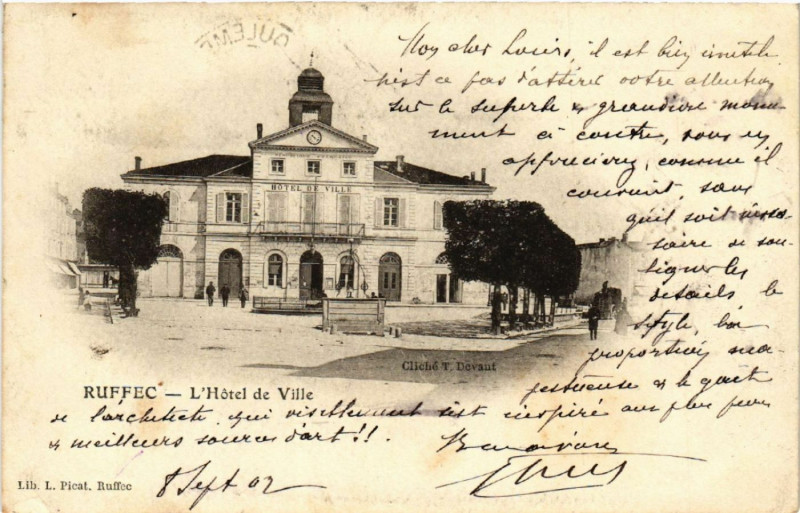 OULÊME
Mon cher Loisirs, il est bien inutile
n'est ce pas d'attirer votre attention
sur le superbe & grandiose monu-
ment ci contre, vous en
apprécierez, comme il
convient, sans
qu'il soit néces-
saire de sou-
ligner les
détails le
style, les
proportions ma-
jestueuse & le goût
de l'architecte qui visiblement s'est inspiré aux plus pures
& meilleures sources d'art!!.
HOTEL DE VILLE
Cliché T. Devaut
RUFFEC — L'Hôtel de Ville
8 Sept 02
Lib. L. Picat. Ruffec